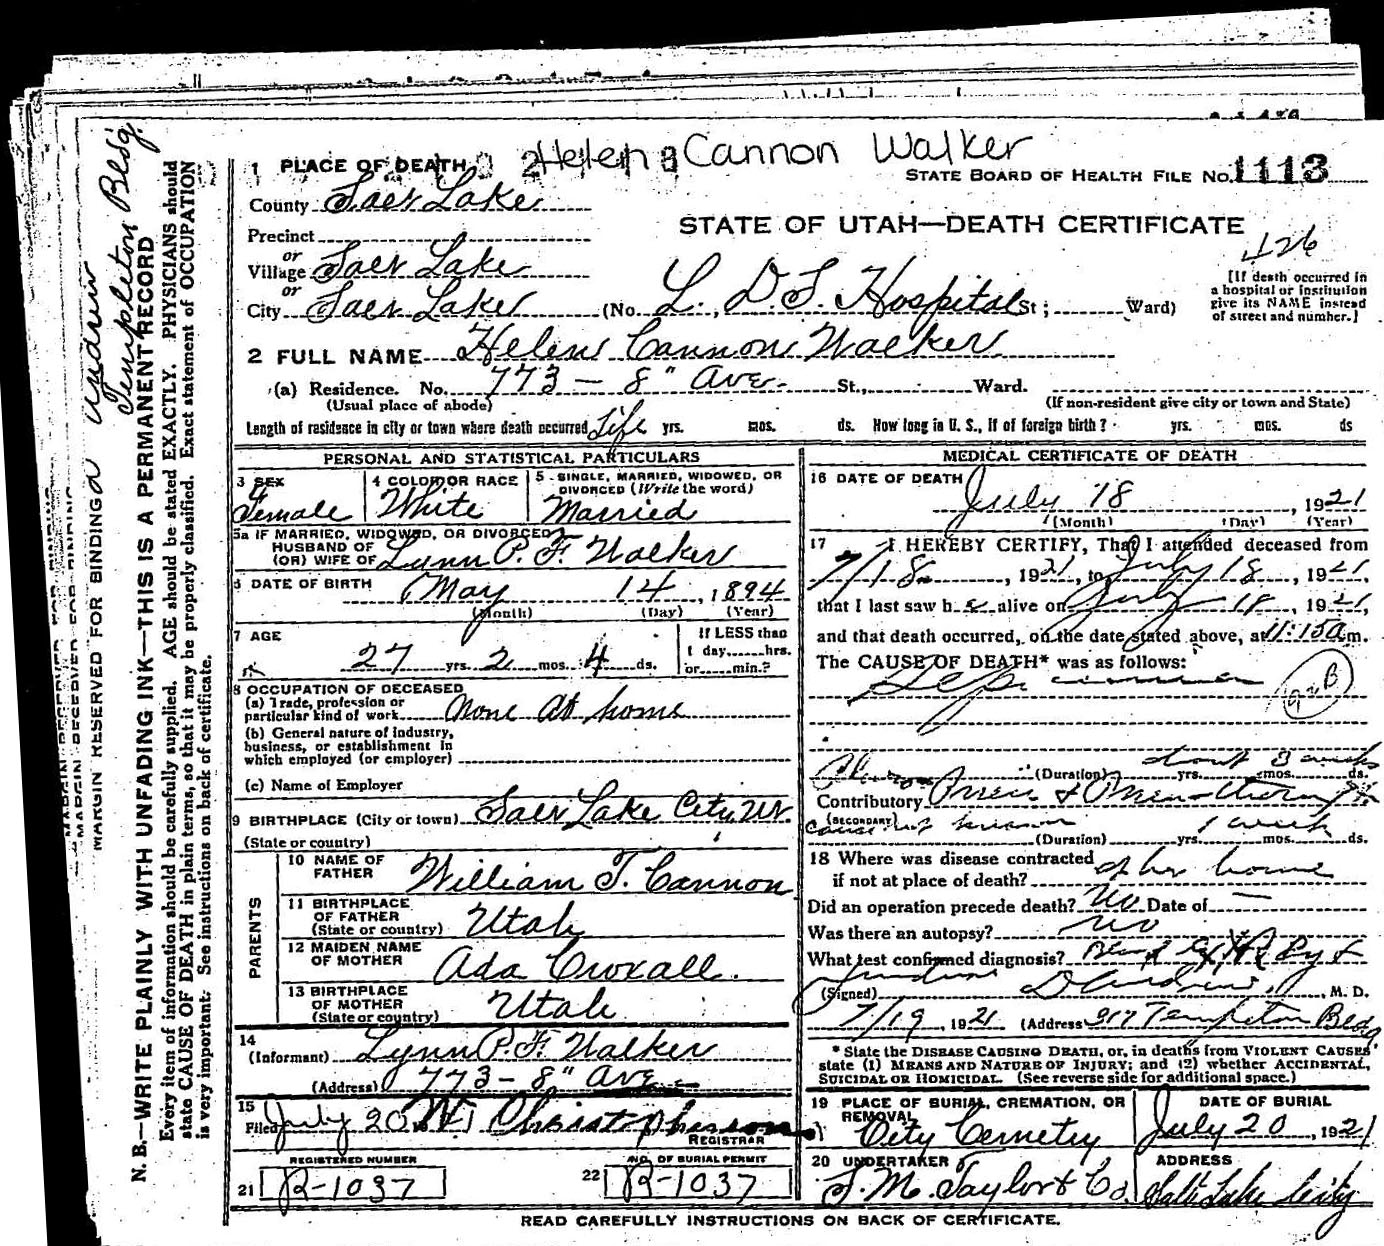 Helen Cannon Walker
1 PLACE OF DEATH
STATE BOARD OF HEALTH FILE No. 1113
County Salt Lake
STATE OF UTAH—DEATH CERTIFICATE
Precinct
426
or
Village Salt Lake
or
City Salt Lake (No. L. D. S. Hospital St; Ward)
[If death occurred in
a hospital or institution
give its NAME instead
of street and number.]
2 FULL NAME Helen Cannon Walker
(a) Residence. No. 773 – 8" Ave. St., Ward.
(Usual place of abode) (If non-resident give city or town and State)
Length of residence in city or town where death occurred Life yrs. mos. ds. How long in U. S., if of foreign birth? yrs. mos. ds
PERSONAL AND STATISTICAL PARTICULARS
3 SEX
Female
4 COLOR OR RACE
White
5 SINGLE, MARRIED, WIDOWED, OR
DIVORCED (Write the word)
Married
5a IF MARRIED, WIDOWED, OR DIVORCED
HUSBAND OF
(OR) WIFE OF Lynn P. F. Walker
6 DATE OF BIRTH May 14, 1894
(Month) (Day) (Year)
7 AGE
27 yrs. 2 mos. 4 ds.
If LESS than
1 day......hrs.
or......min.?
8 OCCUPATION OF DECEASED
(a) Trade, profession or
particular kind of work None At home
(b) General nature of industry,
business, or establishment in
which employed (or employer)
(c) Name of Employer
9 BIRTHPLACE (City or town) Salt Lake City, Ut.
(State or country)
PARENTS
10 NAME OF
FATHER William T. Cannon
11 BIRTHPLACE
OF FATHER
(State or country) Utah
12 MAIDEN NAME
OF MOTHER Ada Croxall.
13 BIRTHPLACE
OF MOTHER
(State or country) Utah
14
(Informant) Lynn P. F. Walker
(Address) 773 – 8" Ave
15
Filed July 20 Christopherson
REGISTRAR
REGISTERED NUMBER
21 R-1037
NO. OF BURIAL PERMIT
22 R-1037
MEDICAL CERTIFICATE OF DEATH
16 DATE OF DEATH
July 18, 1921
(Month) (Day) (Year)
17 I HEREBY CERTIFY, That I attended deceased from
7/18, 1921, to July 18, 1921,
that I last saw h alive on July 18, 1921,
and that death occurred, on the date stated above, at 11:15a m.
The CAUSE OF DEATH* was as follows:
(Duration) yrs. mos. ds.
about 3 weeks
Contributory
(SECONDARY)
cause not known
(Duration) yrs. mos. ds.
1 week
18 Where was disease contracted
if not at place of death? at her home
Did an operation precede death? No Date of —
Was there an autopsy? No
What test confirmed diagnosis?
(Signed) M. D.
7/19, 1921 (Address 917 Templeton Bldg
* State the DISEASE CAUSING DEATH, or, in deaths from VIOLENT CAUSES
state (1) MEANS AND NATURE OF INJURY; and (2) whether ACCIDENTAL,
SUICIDAL OR HOMICIDAL. (See reverse side for additional space.)
19 PLACE OF BURIAL, CREMATION, OR
REMOVAL
City Cemetry
DATE OF BURIAL
July 20, 1921
20 UNDERTAKER
S. M. Taylor & Co.
ADDRESS
Salt Lake City
READ CAREFULLY INSTRUCTIONS ON BACK OF CERTIFICATE.
Templeton Bldg.
MARGIN RESERVED FOR BINDING
N. B.—WRITE PLAINLY WITH UNFADING INK—THIS IS A PERMANENT RECORD
Every item of information should be carefully supplied. AGE should be stated EXACTLY. PHYSICIANS should
state CAUSE OF DEATH in plain terms, so that it may be properly classified. Exact statement of OCCUPATION
is very important. See instructions on back of certificate.